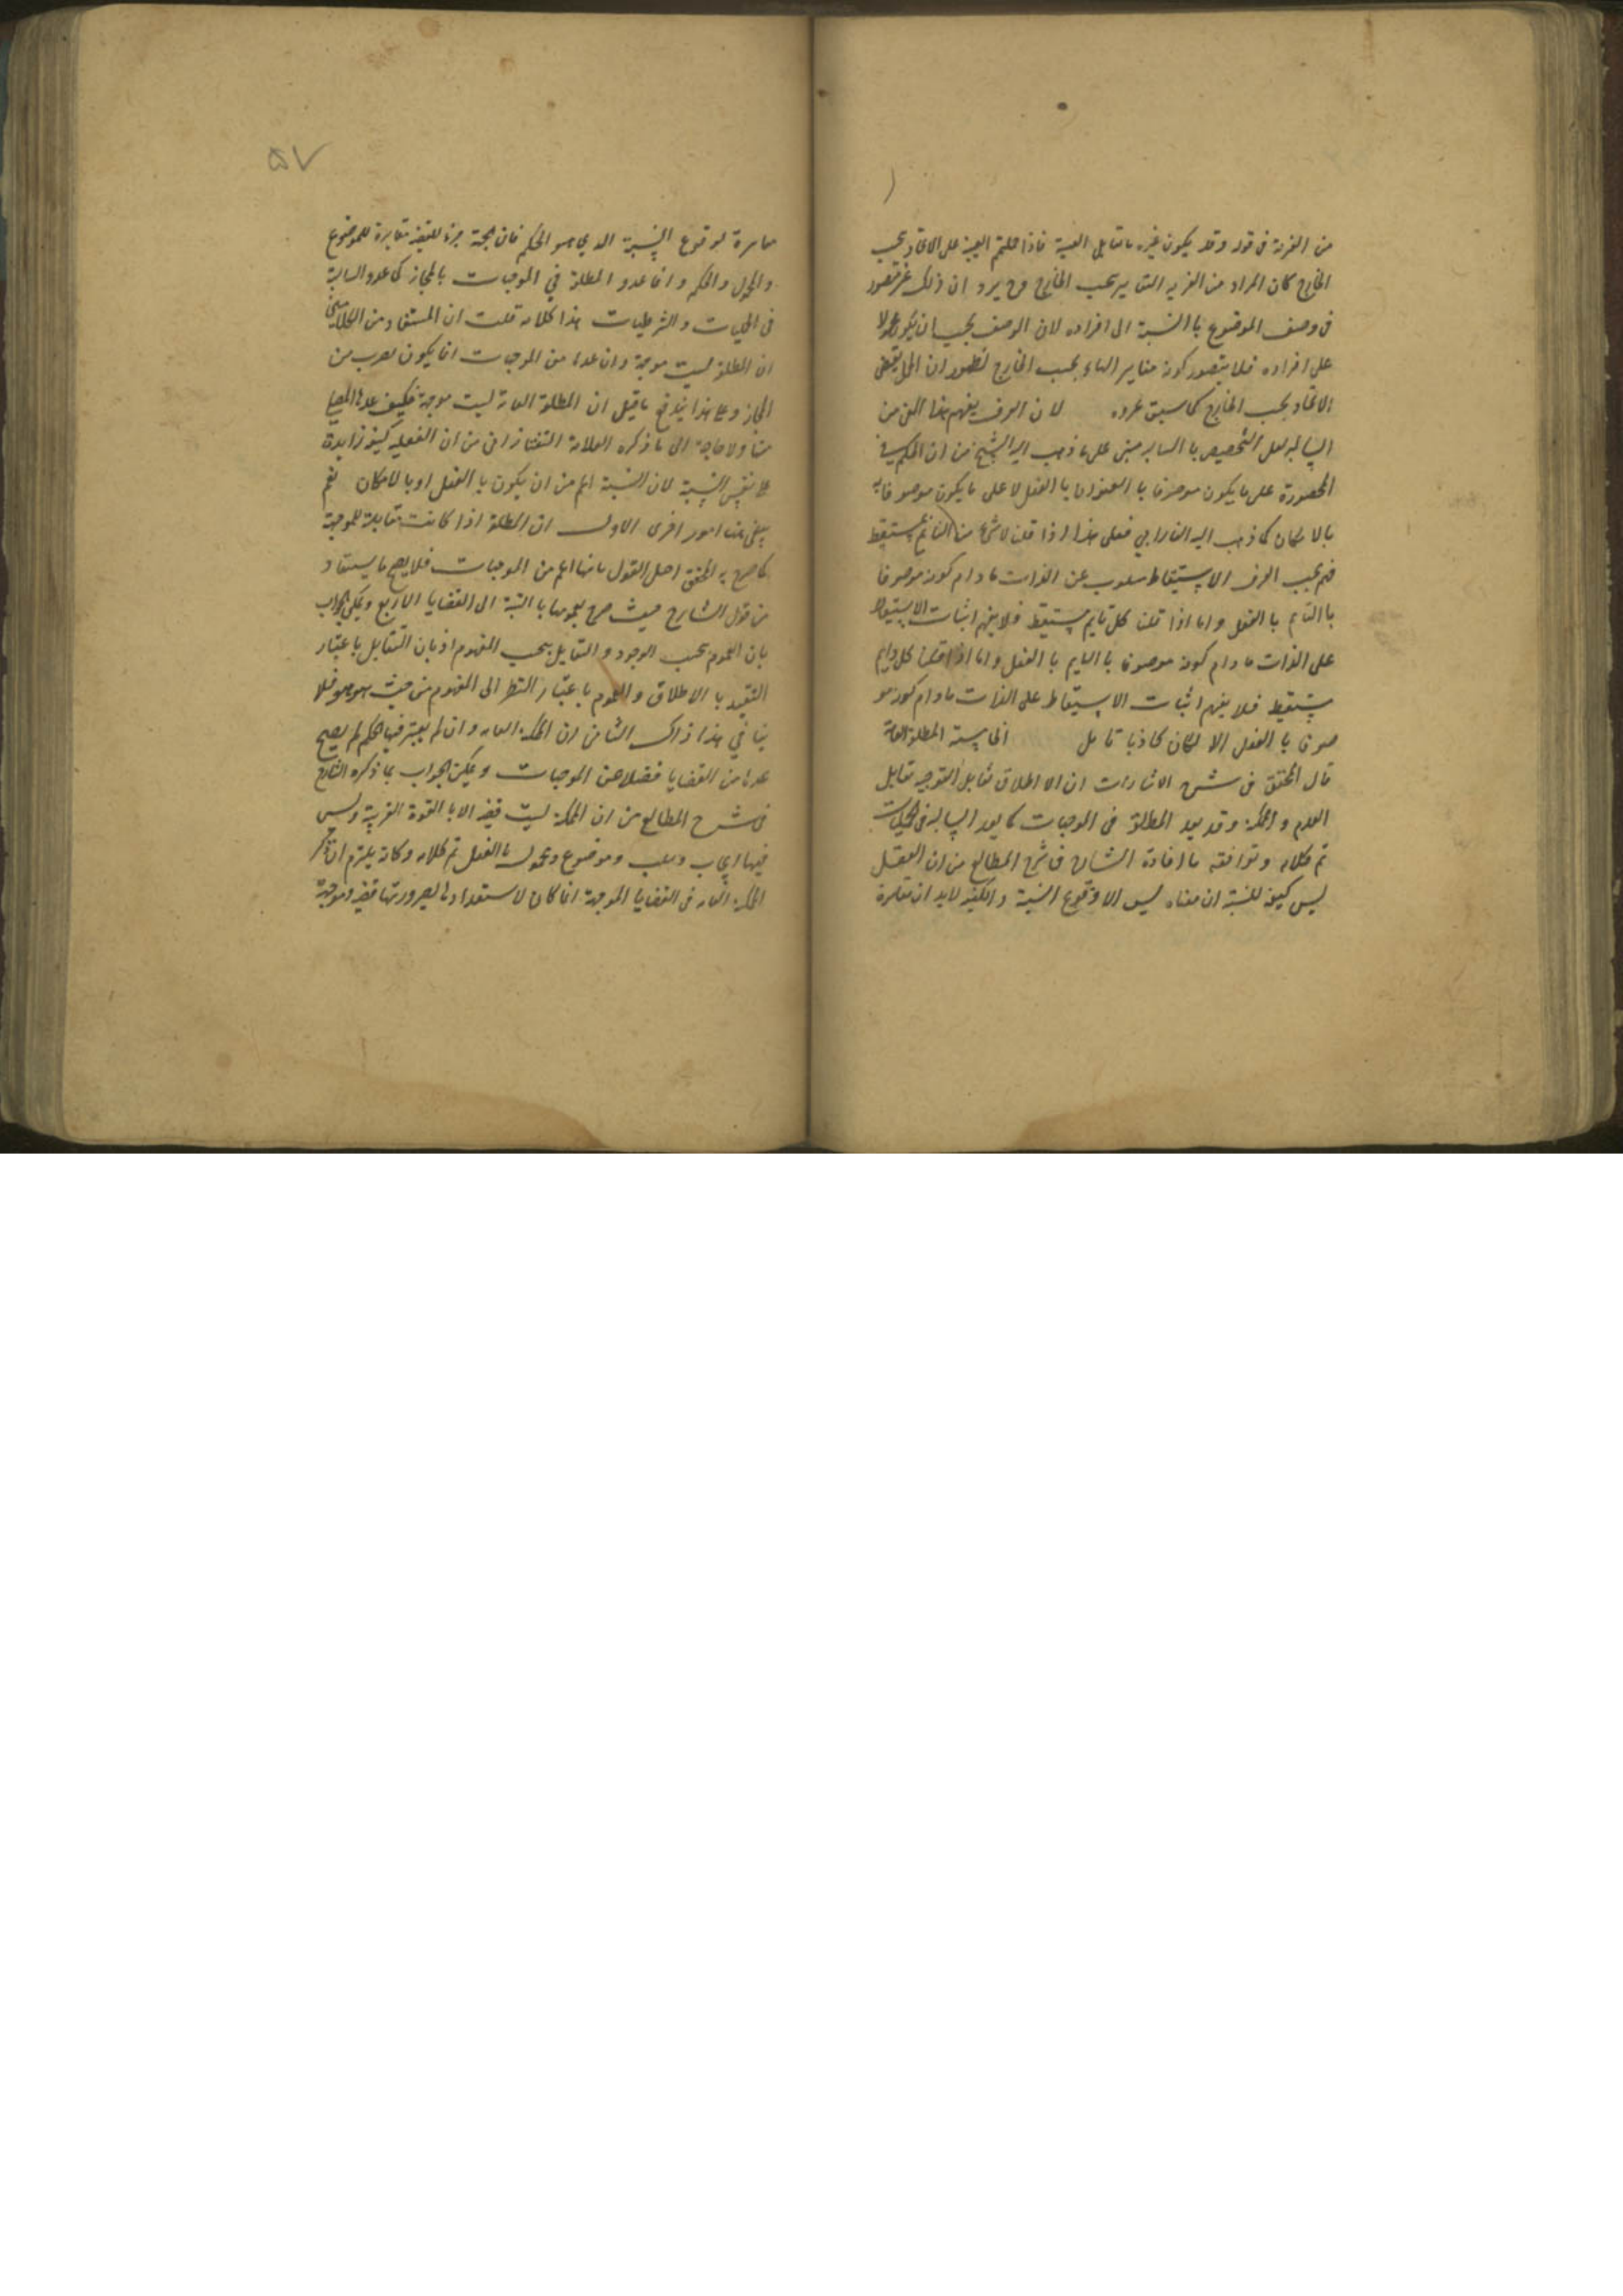 من الغيرية فى قوله وقد يكون غيره ما تقابل العينية فاذا حملتم العينية على الاتحاد بحسب
الخارج كان المراد من الغيرية التغاير بحسب الخارج وح يرد ان ذلك غير متصور
فى وصف الموضوع با النسبة الى افراده لان الوصف يجب ان يكون محمولا
على افراده فلا يتصور كونه مغايرا لها بحسب الخارج لظهور ان الحمل يقتضى
الاتحاد بحسب الخارج كما سبق غيره لان العرف يفهم هذا المعنى من
السالبة لعل التخصيص با السالبة مبنى على ما ذهب اليه الشيخ من ان الحكم فى
المحصورة على ما يكون موصوفا با العنوان با الفعل لا على ما يكون موصوفا به
بالامكان كما ذهب اليه الفارابي فعلى هذا اذا قلنا لا شئ من النائم بمستيقظ
فهم بحسب العرف الاستيقاظ مسلوب عن الذات ما دام كونه موصوفا
با النايم با الفعل واما اذا قلنا كل نايم مستيقظ فلا يفهم اثبات الاستيقاظ
على الذات ما دام كونه موصوفا با النايم با الفعل واما اذا قلنا كل نايم
مستيقظ فلا يفهم اثبات الاستيقاظ على الذات ما دام كونه مو
صوفا با الفعل الا لكان كاذبا تامل الخامسة المطلقة العامة
قال المحقق فى شرح الاشارات ان الاطلاق تقابل التوجيه تقابل
العدم و الملكة وقد يعد المطلقة فى الموجهات كما يعد السالبة فى الحمليات
تم كلامه وتوافقه ما افاده الشارح فى شرح المطالع من ان الفعل
ليس كيفية للنسبة ان معناه ليس الا وقوع النسبة والكيفية لابد ان مغايرة
۵۷
مغايرة لوقوع النسبة الذي هو الحكم فان الجهة جزء للقضية مغايرة للموضوع
والمحمول والحكم و انما عدوا المطلقة في الموجهات بالمجاز كما عدوا السالبة
فى الحمليات و الشرطيات هذا كلامه قلت ان المستفاد من الكلامين
ان المطلقة ليست موجهة وان عدها من الموجهات انما يكون لضرب من
المجاز وعلى هذا يندفع ما قيل ان المطلقة العامة ليست موجهة فكيف عدها المص
منها ولا حاجة الى ما ذكره العلامة التفتازانى من ان الفعلية كيفية زايدة
على نفس النسبة لان النسبة اعم من ان يكون با الفعل او بالامكان نعم
يبقى هنا امور اخرى الاول ان المطلقة اذا كانت مقابلة للموجهة
كما صرح به المحقق القول بانها اعم من الموجهات فلا يصح ما يستفاد
من قول الشارح حيث صرح بعمومها با النسبة الى القضايا الاربع ويمكن الجواب
بان العموم بحسب الوجود و التقابل بحسب المفهوم التقابل باعتبار
التقييد با الاطلاق و العموم با عتبار النظر الى المفهوم من حيث هو هو فلا
ينا في هذا ذاك الثانى ان الممكنة العامة و ان لم يعتبر فيها الحكم لم يصح
عدها من القضايا فضلا عن الموجهات ويمكن الجواب بما ذكره الشارح
فى شرح المطالع من ان الممكنة ليست قضية الا با القوة القريبة وليس
فيها ايجاب وسلب وموضوع ومحمول با الفعل تم كلامه وكانه يلتزم ان ذكر
الممكنة العامة فى القضايا الموجهة انما كان لاستعدادها لصيرورتها قضية وموجهة